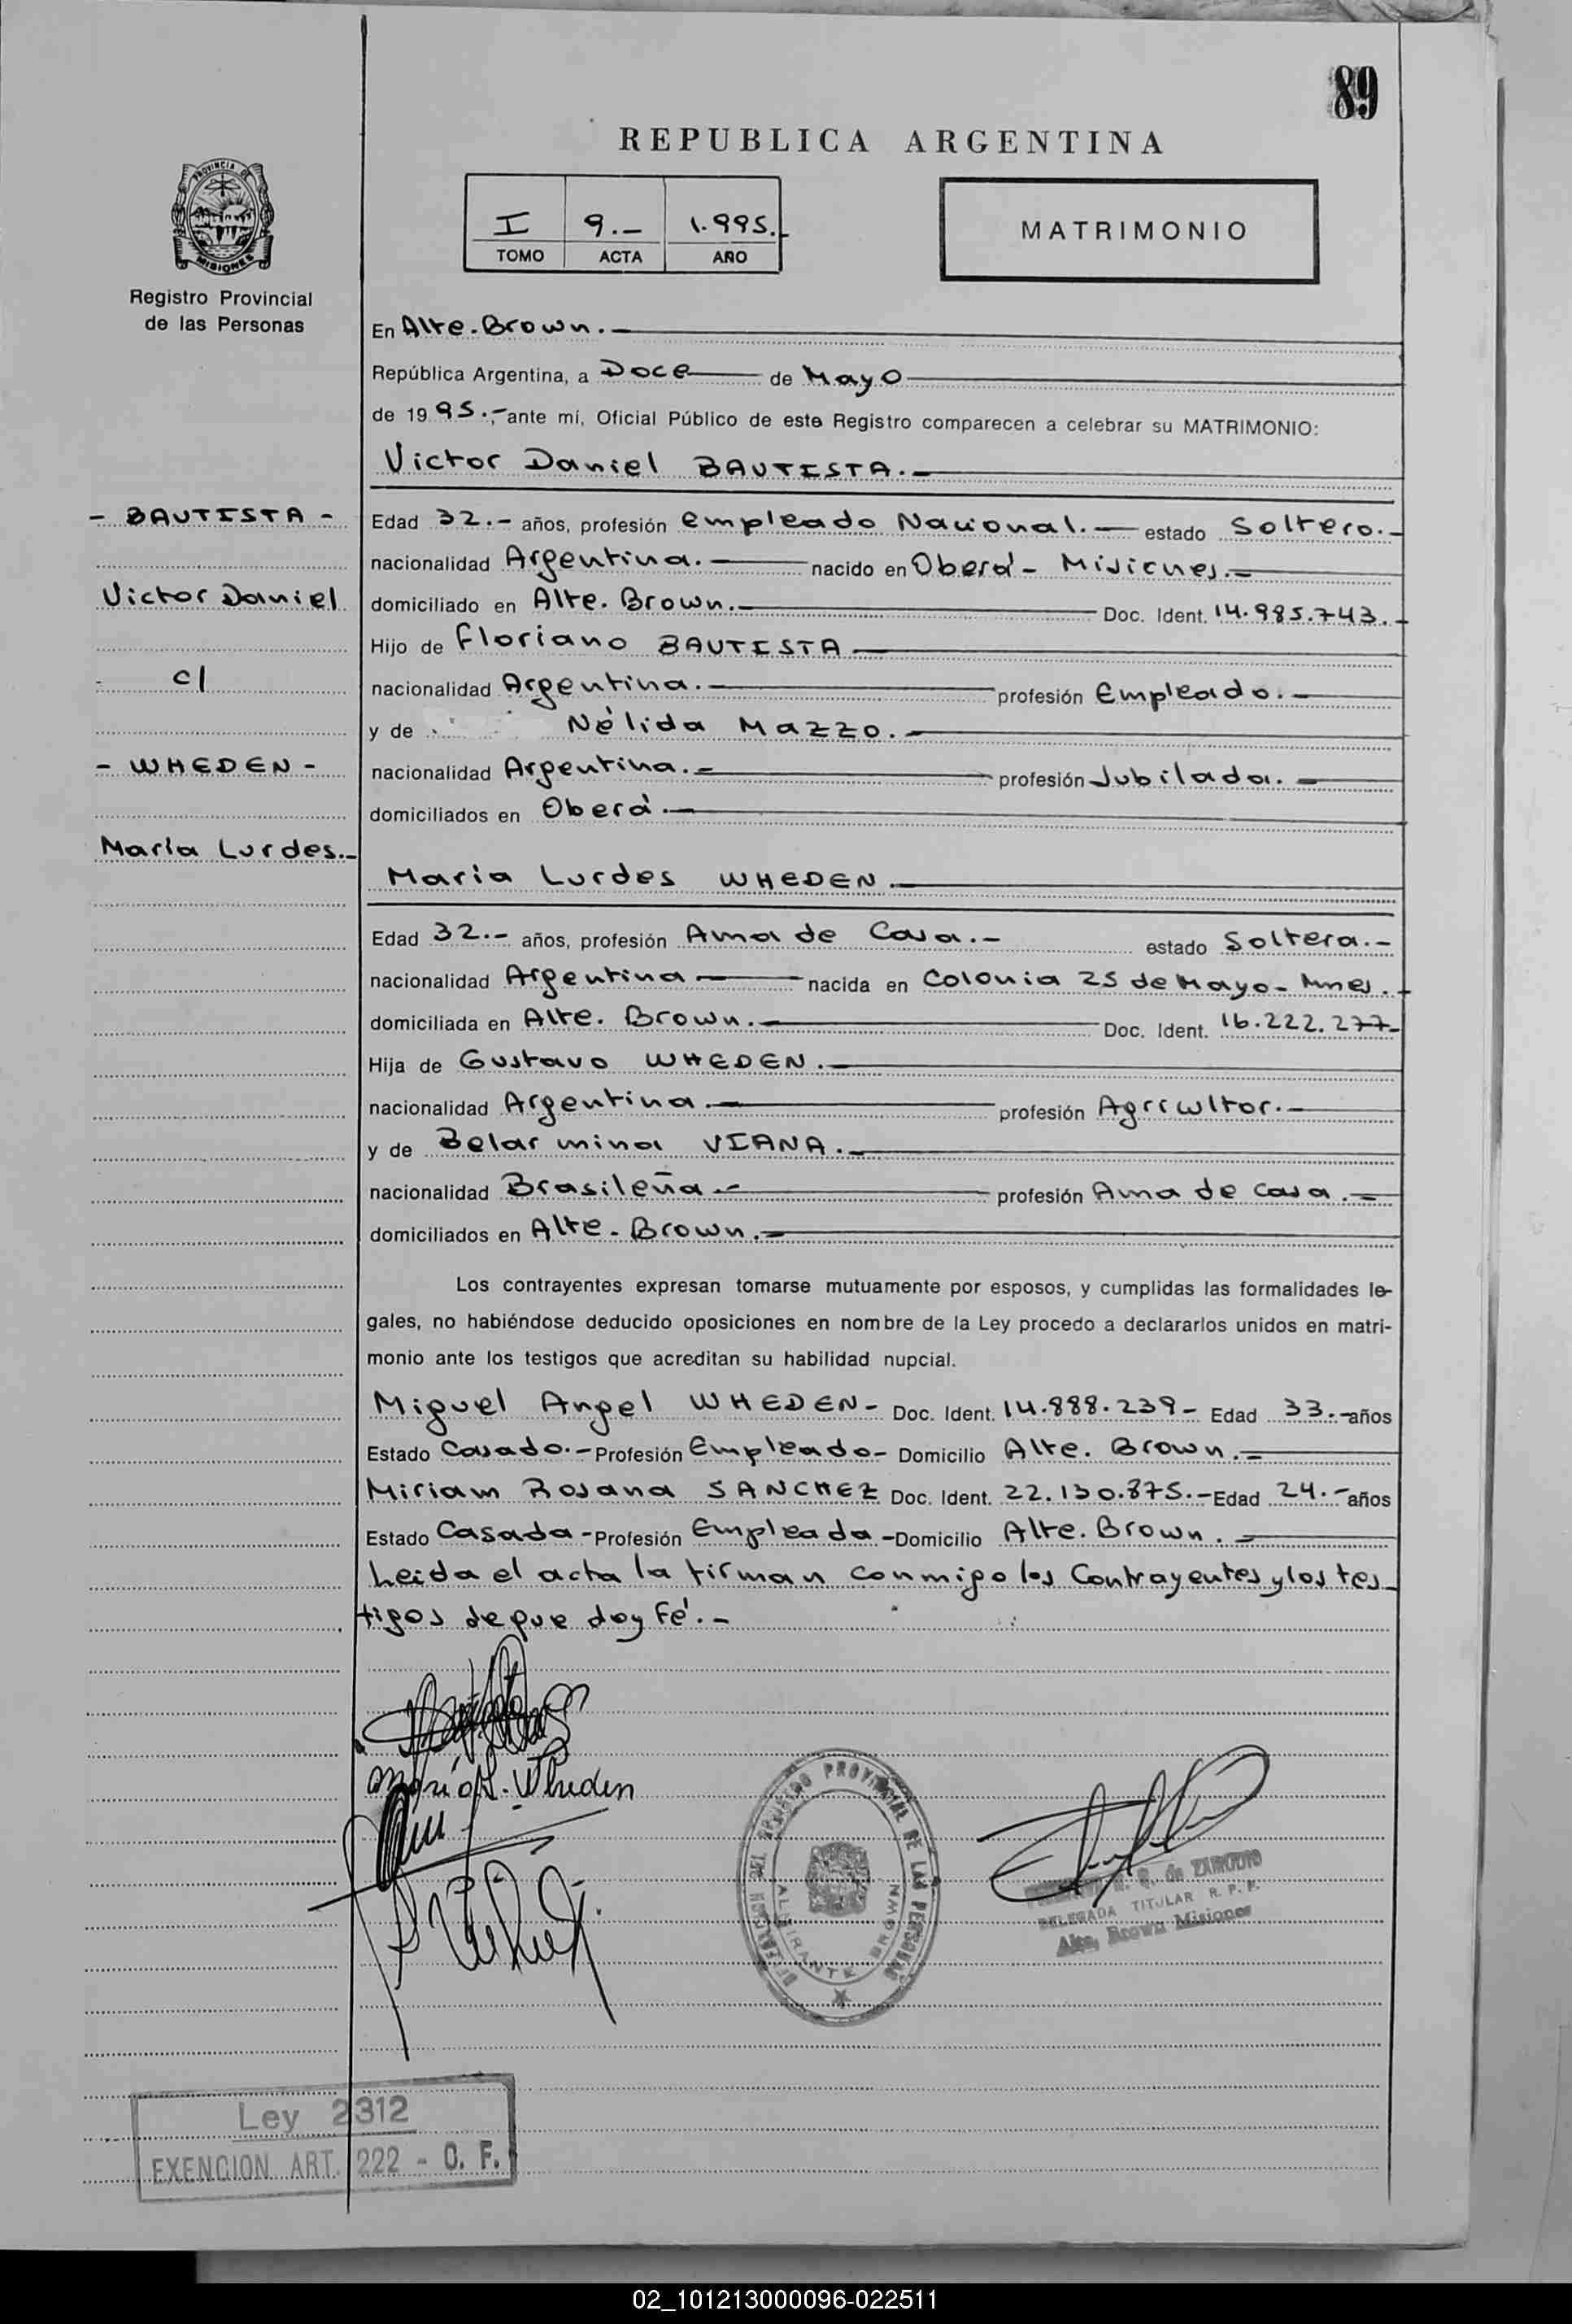 89
REPUBLICA ARGENTINA
PROVINCIA DE
MISIONES
Registro Provincial
de las Personas
I 9.- 1.995.-
TOMO ACTA AÑO
MATRIMONIO
En Alte. Brown.-
República Argentina, a Doce de Mayo
de 1995.- ante mí, Oficial Público de este Registro comparecen a celebrar su MATRIMONIO:
Victor Daniel BAUTISTA.-
- BAUTISTA -
Victor Daniel
c/
- WHEDEN -
María Lurdes.-
Edad 32.- años, profesión empleado Nacional.- estado Soltero.-
nacionalidad Argentina.- nacido en Oberá - Misiones.-
domiciliado en Alte. Brown.- Doc. Ident. 14.985.743.-
Hijo de Floriano BAUTISTA
nacionalidad Argentina.- profesión Empleado.-
y de Nélida Mazzo.-
nacionalidad Argentina.- profesión Jubilada.-
domiciliados en Oberá.-
María Lurdes WHEDEN
Edad 32.- años, profesión Ama de Casa.- estado Soltera.-
nacionalidad Argentina nacida en Colonia 25 de Mayo - Mnes.-
domiciliada en Alte. Brown.- Doc. Ident. 16.222.277-
Hija de Gustavo WHEDEN.-
nacionalidad Argentina.- profesión Agricultor.-
y de Belarmina VIANA.-
nacionalidad Brasileña.- profesión Ama de casa.-
domiciliados en Alte. Brown.-
Los contrayentes expresan tomarse mutuamente por esposos, y cumplidas las formalidades le-
gales, no habiéndose deducido oposiciones en nombre de la Ley procedo a declararlos unidos en matri-
monio ante los testigos que acreditan su habilidad nupcial.
Miguel Angel WHEDEN- Doc. Ident. 14.888.239- Edad 33.- años
Estado Casado.- Profesión Empleado- Domicilio Alte. Brown.-
Miriam Rosana SANCHEZ Doc. Ident. 22.130.875.- Edad 24.- años
Estado Casada - Profesión Empleada - Domicilio Alte. Brown.-
Leida el acta la firman conmigo los Contrayentes y los tes-
tigos de que doy Fé.-
María L. Wheden
REGISTRO PROVINCIAL DE LAS PERSONAS
ALMIRANTE BROWN
de ZAMUDIO
DELEGADA TITULAR R. P. P.
Alte. Brown Misiones
Ley 2312
EXENCION ART. 222 - C. F.
02_101213000096-022511